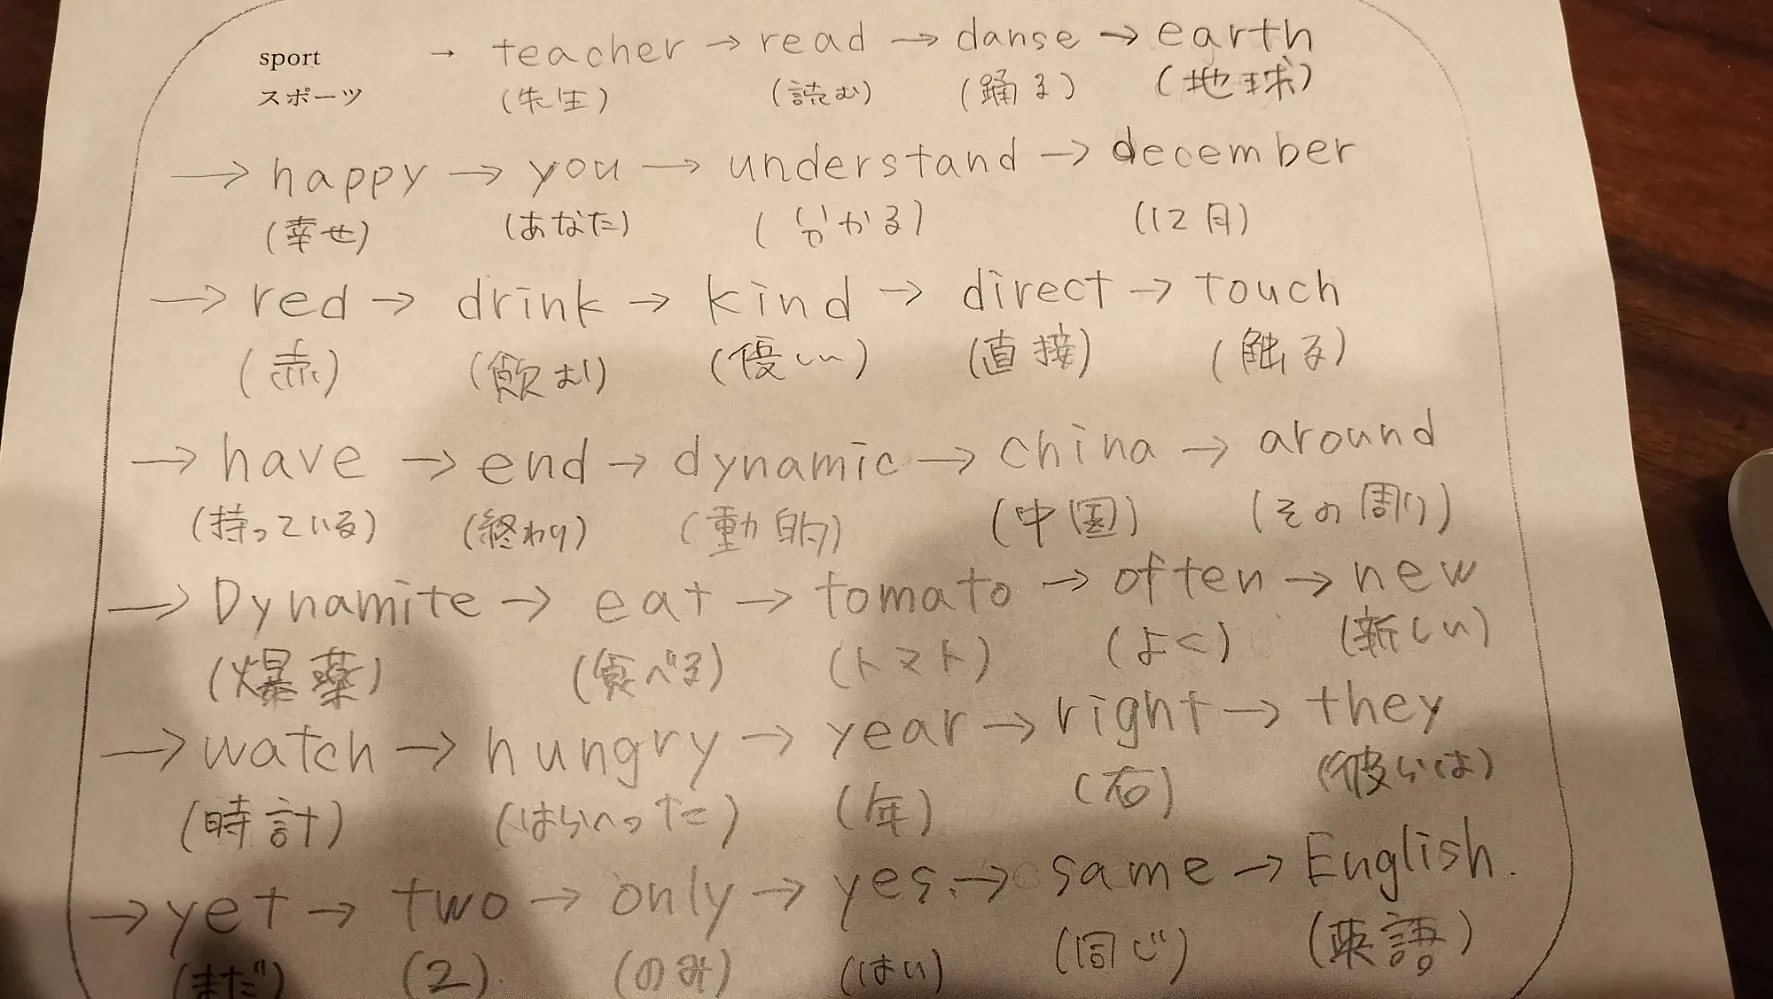 sport → teacher → read → danse → earth
スポーツ (先生) (読む) (踊る) (地球)
→ happy → you → understand → december
(幸せ) (あなた) (分かる) (12月)
→ red → drink → kind → direct → touch
(赤) (飲む) (優しい) (直接) (触る)
→ have → end → dynamic → china → around
(持っている) (終わり) (動的) (中国) (その周り)
→ Dynamite → eat → tomato → often → new
(爆薬) (食べる) (トマト) (よく) (新しい)
→ watch → hungry → year → right → they
(時計) (はらへった) (年) (右) (彼らは)
→ yet → two → only → yes. → same → English.
(まだ) (2) (のみ) (はい) (同じ) (英語)